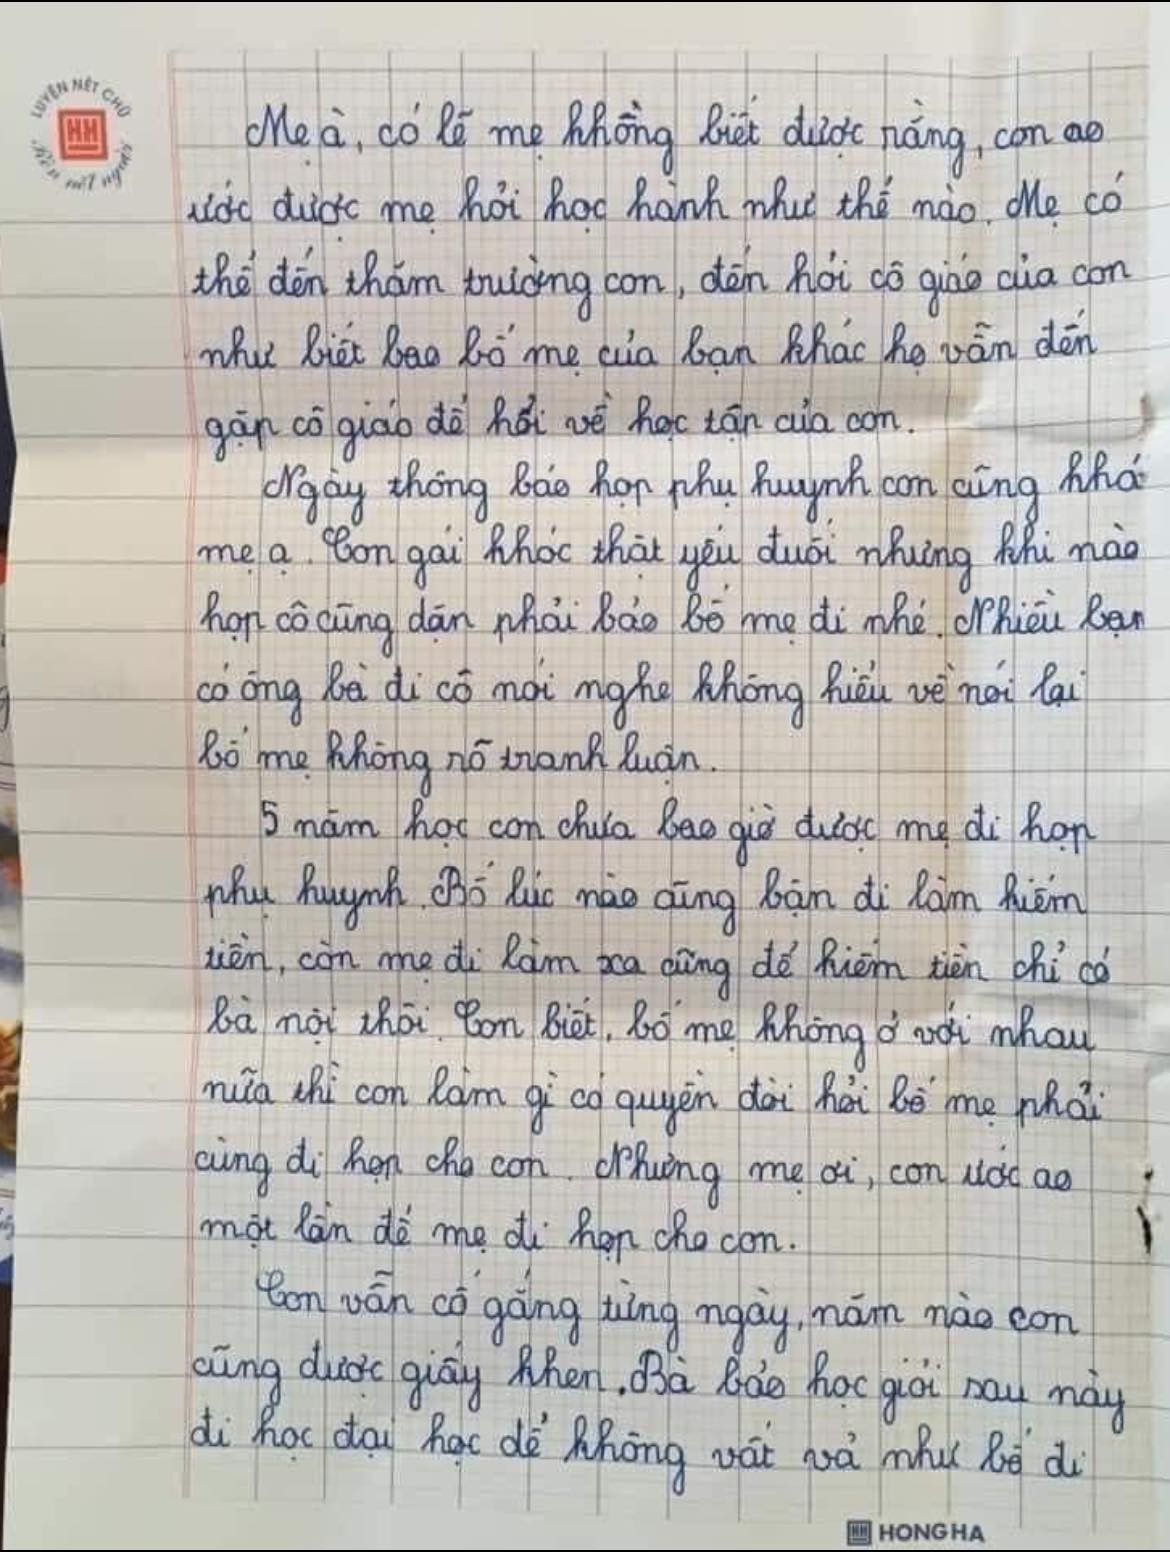 LUYỆN NÉT CHỮ
HH
rèn nết người
Mẹ à, có lẽ mẹ không biết được rằng, con ao
ước được mẹ hỏi học hành như thế nào. Mẹ có
thể đến thăm trường con, đến hỏi cô giáo của con
như biết bao bố mẹ của bạn khác họ vẫn đến
gặp cô giáo để hỏi về học tập của con.
Ngày thông báo họp phụ huynh con cũng khó
mẹ ạ. Con gái khóc thật yếu đuối nhưng khi nào
họp cô cũng dặn phải bảo bố mẹ đi nhé. Nhiều bạn
có ông bà đi cô nói nghe không hiểu về nói lại
bố mẹ không rõ tranh luận.
5 năm học con chưa bao giờ được mẹ đi họp
phụ huynh. Bố lúc nào cũng bận đi làm kiếm
tiền, còn mẹ đi làm xa cũng để kiếm tiền chỉ có
bà nội thôi. Con biết, bố mẹ không ở với nhau
nữa thì con làm gì có quyền đòi hỏi bố mẹ phải
cùng đi họp cho con. Nhưng mẹ ơi, con ước ao
một lần để mẹ đi họp cho con.
Con vẫn cố gắng từng ngày, năm nào con
cũng được giấy khen. Bà bảo học giỏi sau này
đi học đại học để không vất vả như bố đi
HH HONG HA